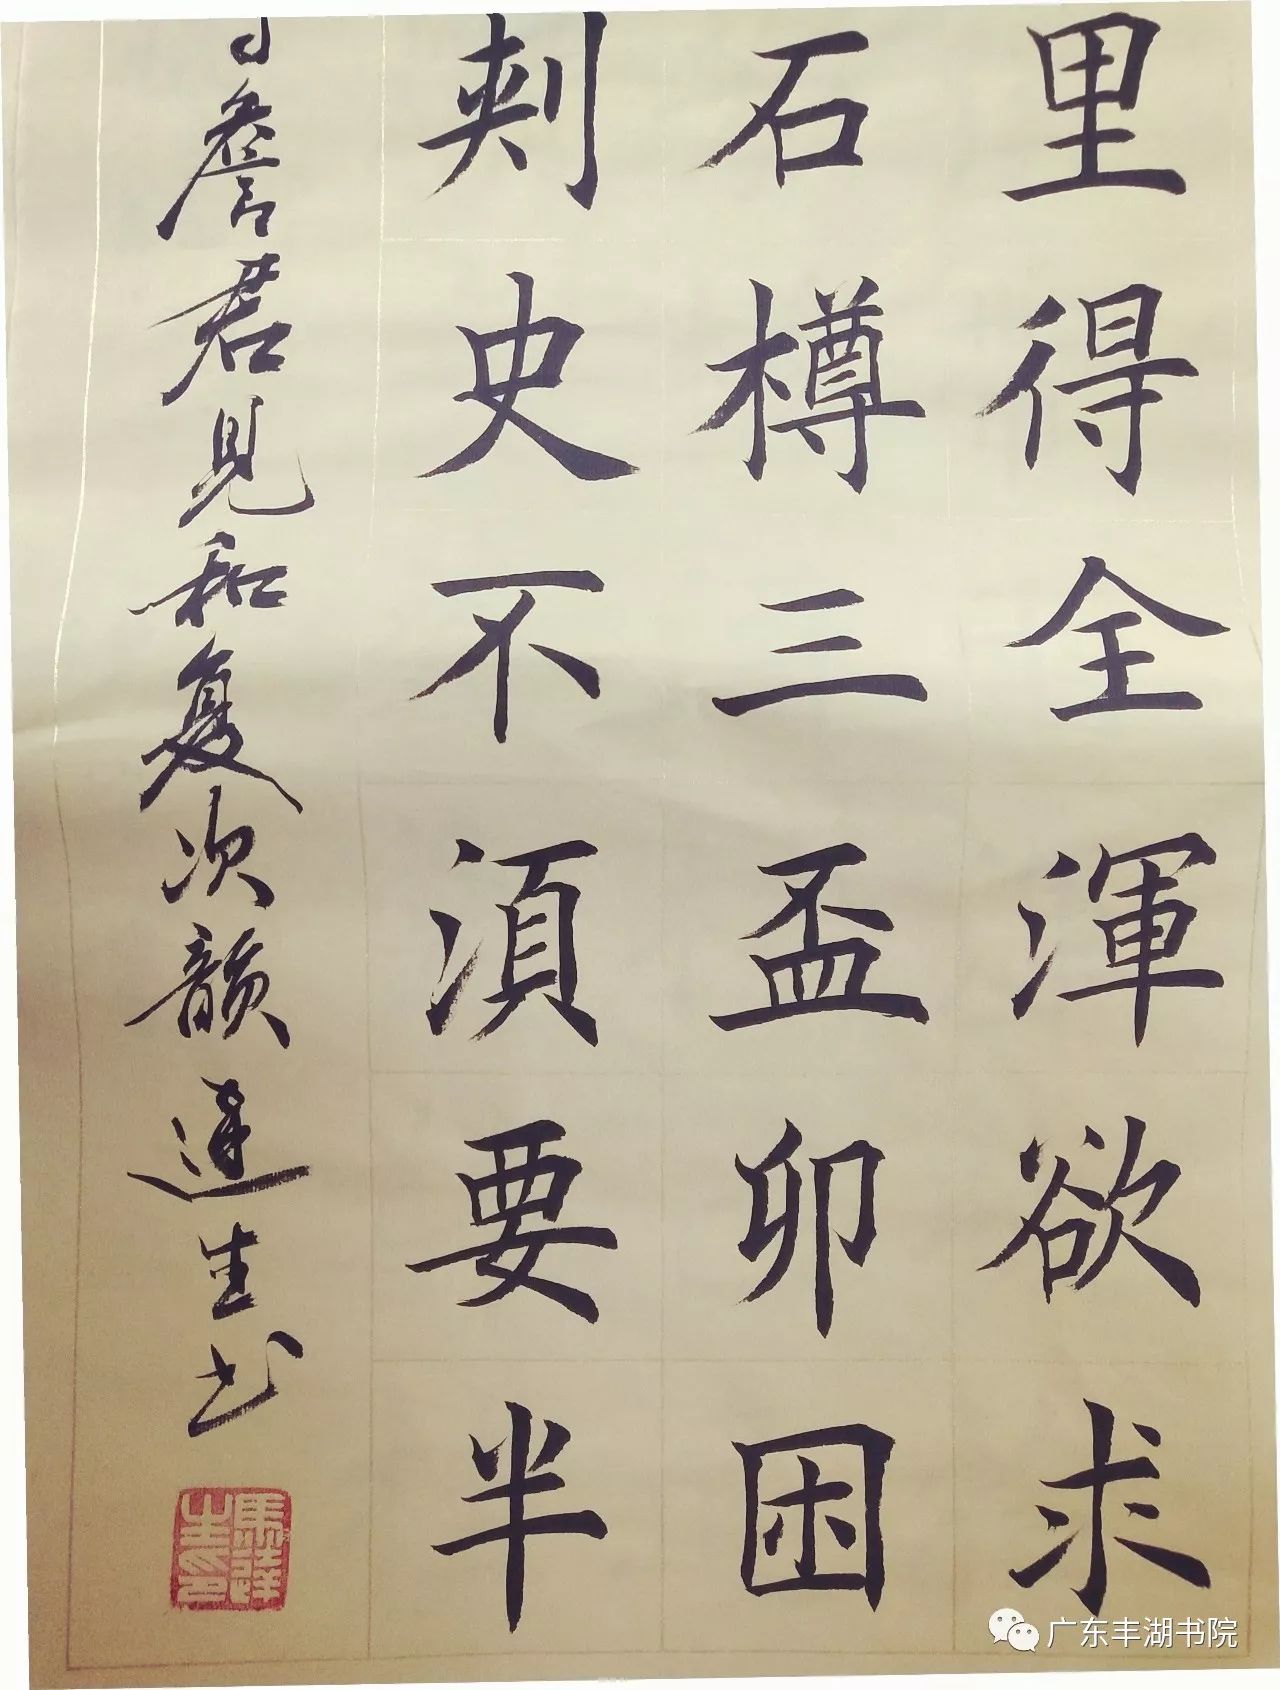 里得全渾欲求
石樽三盃卯困
刾史不湏要半
詹君見和复次韻達生书
馬達生印
广东丰湖书院